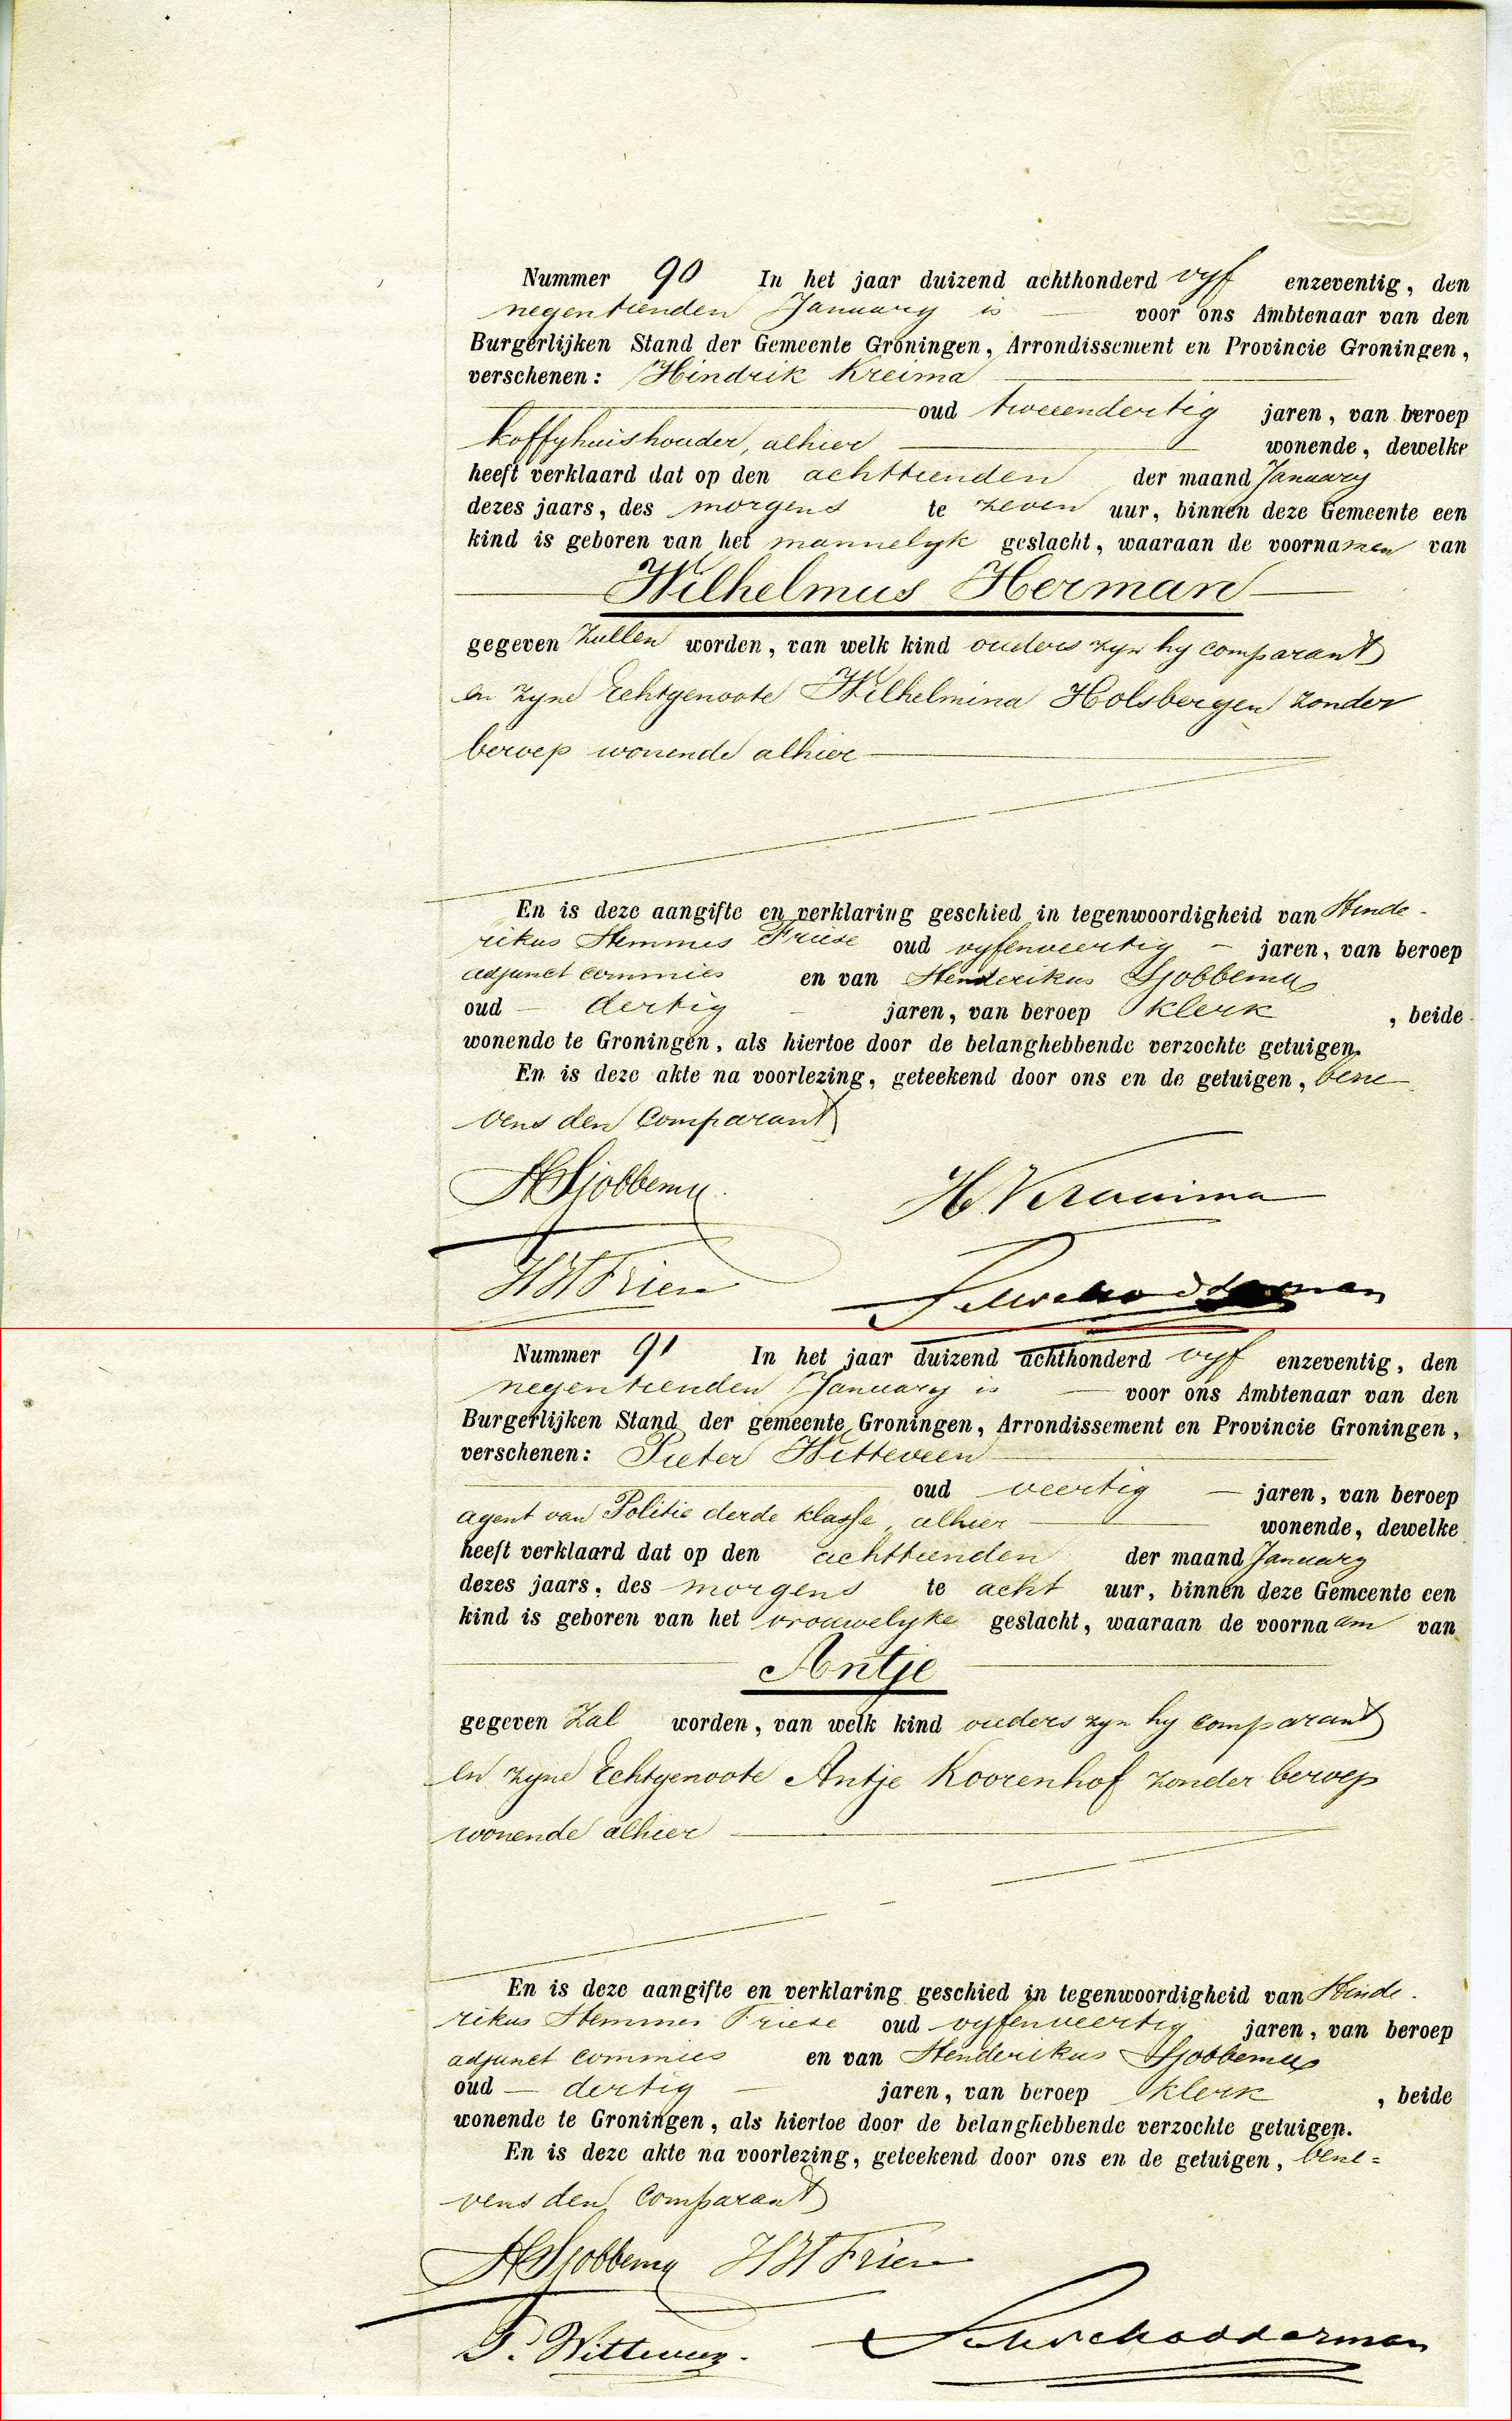 Nummer 90 In het jaar duizend achthonderd vyf enzeventig, den
negentienden January is voor ons Ambtenaar van den
Burgerlijken Stand der Gemeente Groningen, Arrondissement en Provincie Groningen,
verschenen: Hindrik Kreima
oud tweeendertig jaren, van beroep
koffyhuishouder, alhier wonende, dewelke
heeft verklaard dat op den achttienden der maand January
dezes jaars, des morgens te zeven uur, binnen deze Gemeente een
kind is geboren van het mannelyk geslacht, waaraan de voornamen van
Wilhelmus Herman
gegeven zullen worden, van welk kind ouders zyn hy comparant
en zyne Echtgenoote Wilhelmina Holsbergen zonder
beroep wonende alhier
En is deze aangifte en verklaring geschied in tegenwoordigheid van Hinde-
rikus Hemmes Friese oud vyfenveertig jaren, van beroep
adjunct commies en van Henderikus Sjobbema
oud dertig jaren, van beroep klerk, beide
wonende te Groningen, als hiertoe door de belanghebbende verzochte getuigen.
En is deze akte na voorlezing, geteekend door ons en de getuigen, bene-
vens den Comparant
HSjobbema H Kraaima
HHFriese
Nummer 91 In het jaar duizend achthonderd vyf enzeventig, den
negentienden January is voor ons Ambtenaar van den
Burgerlijken Stand der gemeente Groningen, Arrondissement en Provincie Groningen,
verschenen: Pieter Witteveen
oud veertig jaren, van beroep
agent van Politie derde klasse, alhier wonende, dewelke
heeft verklaard dat op den achttienden der maand January
dezes jaars, des morgens te acht uur, binnen deze Gemeente een
kind is geboren van het vrouwelyke geslacht, waaraan de voornaam van
Antje
gegeven zal worden, van welk kind ouders zyn hy comparant
en zyne Echtgenoote Antje Koorenhof zonder beroep
wonende alhier
En is deze aangifte en verklaring geschied in tegenwoordigheid van Hinde-
rikus Hemmes Friese oud vyfenveertig jaren, van beroep
adjunct commies en van Henderikus Sjobbema
oud dertig jaren, van beroep klerk, beide
wonende te Groningen, als hiertoe door de belanghebbende verzochte getuigen.
En is deze akte na voorlezing, geteekend door ons en de getuigen, bene=
vens den Comparant
HSjobbema HHFriese
P. Witteveen